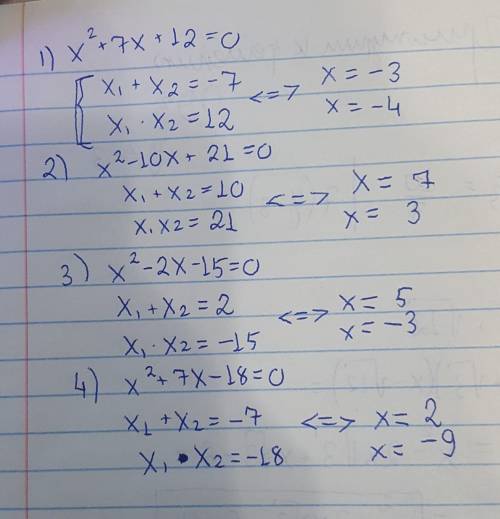 1) x² + 7x + 12 = 0
x₁ + x₂ = -7 <=> x = -3
x₁ · x₂ = 12 x = -4
2) x² - 10x + 21 = 0
x₁ + x₂ = 10 <=> x = 7
x₁ x₂ = 21 x = 3
3) x² - 2x - 15 = 0
x₁ + x₂ = 2 <=> x = 5
x₁ · x₂ = -15 x = -3
4) x² + 7x - 18 = 0
x₁ + x₂ = -7 <=> x = 2
x₁ · x₂ = -18 x = -9